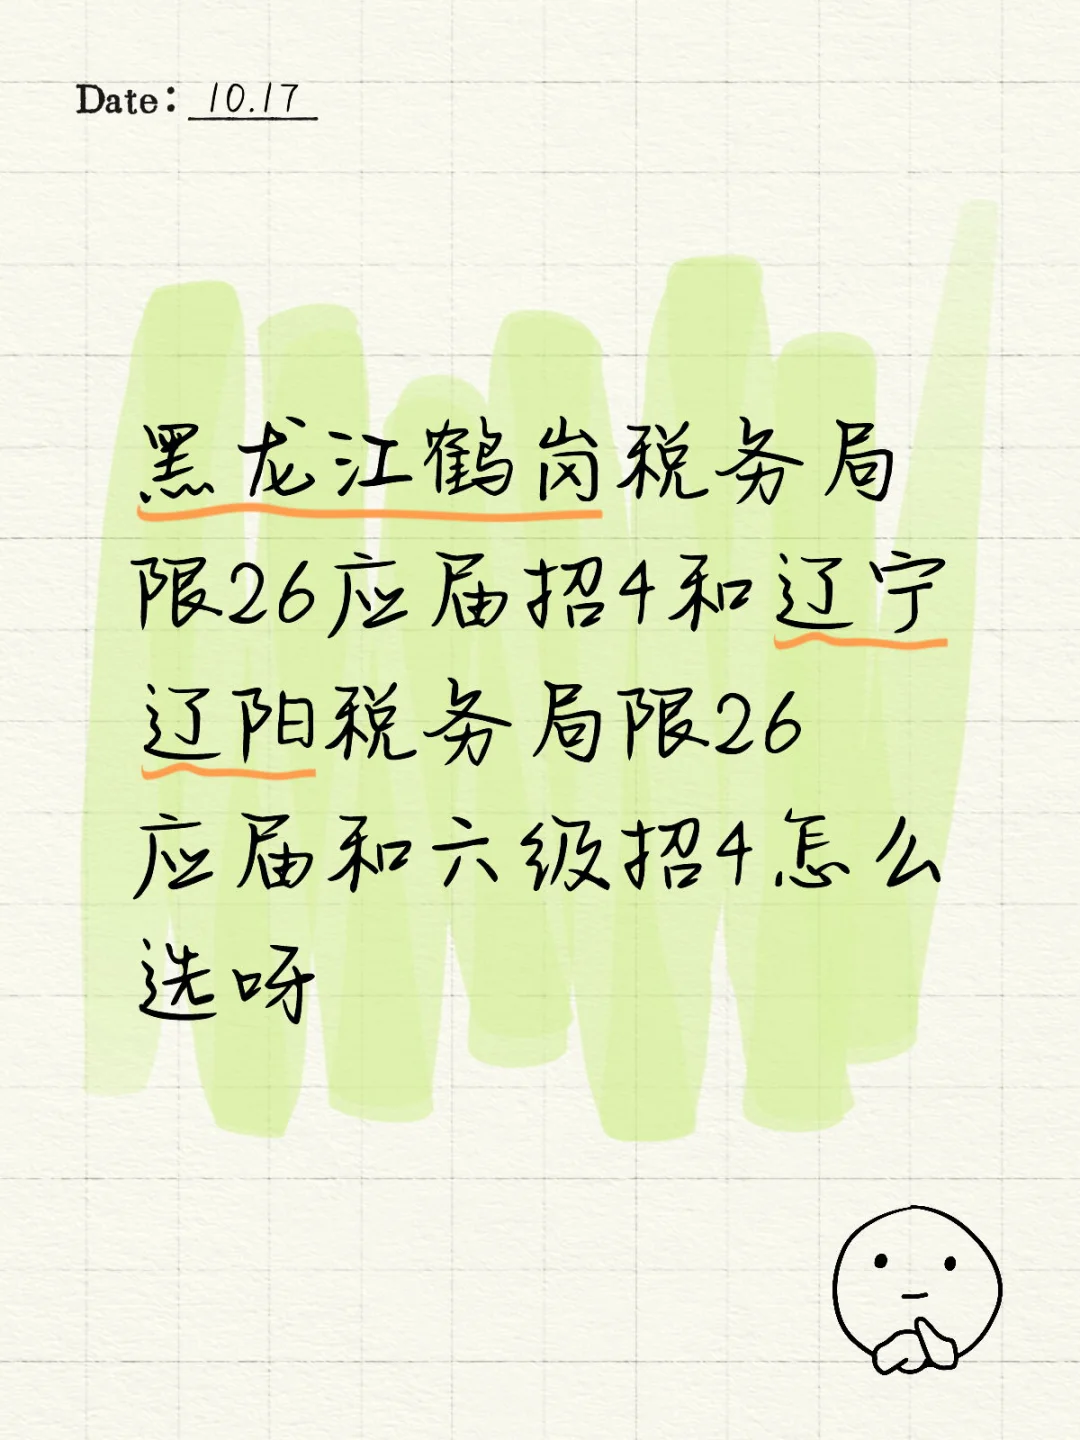 Date: 10.17
黑龙江鹤岗税务局
限26应届招4和辽宁
辽阳税务局限26
应届和六级招4怎么
选呀